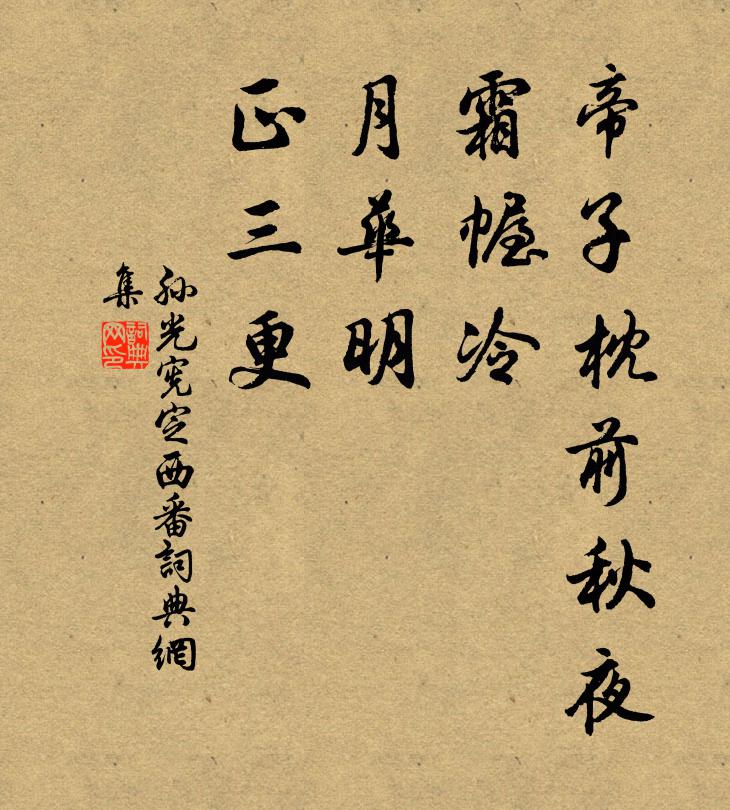 帝子枕前秋夜
霜幄冷
月華明
正三更
孙光宪定西番詞典網
集
詞典网印